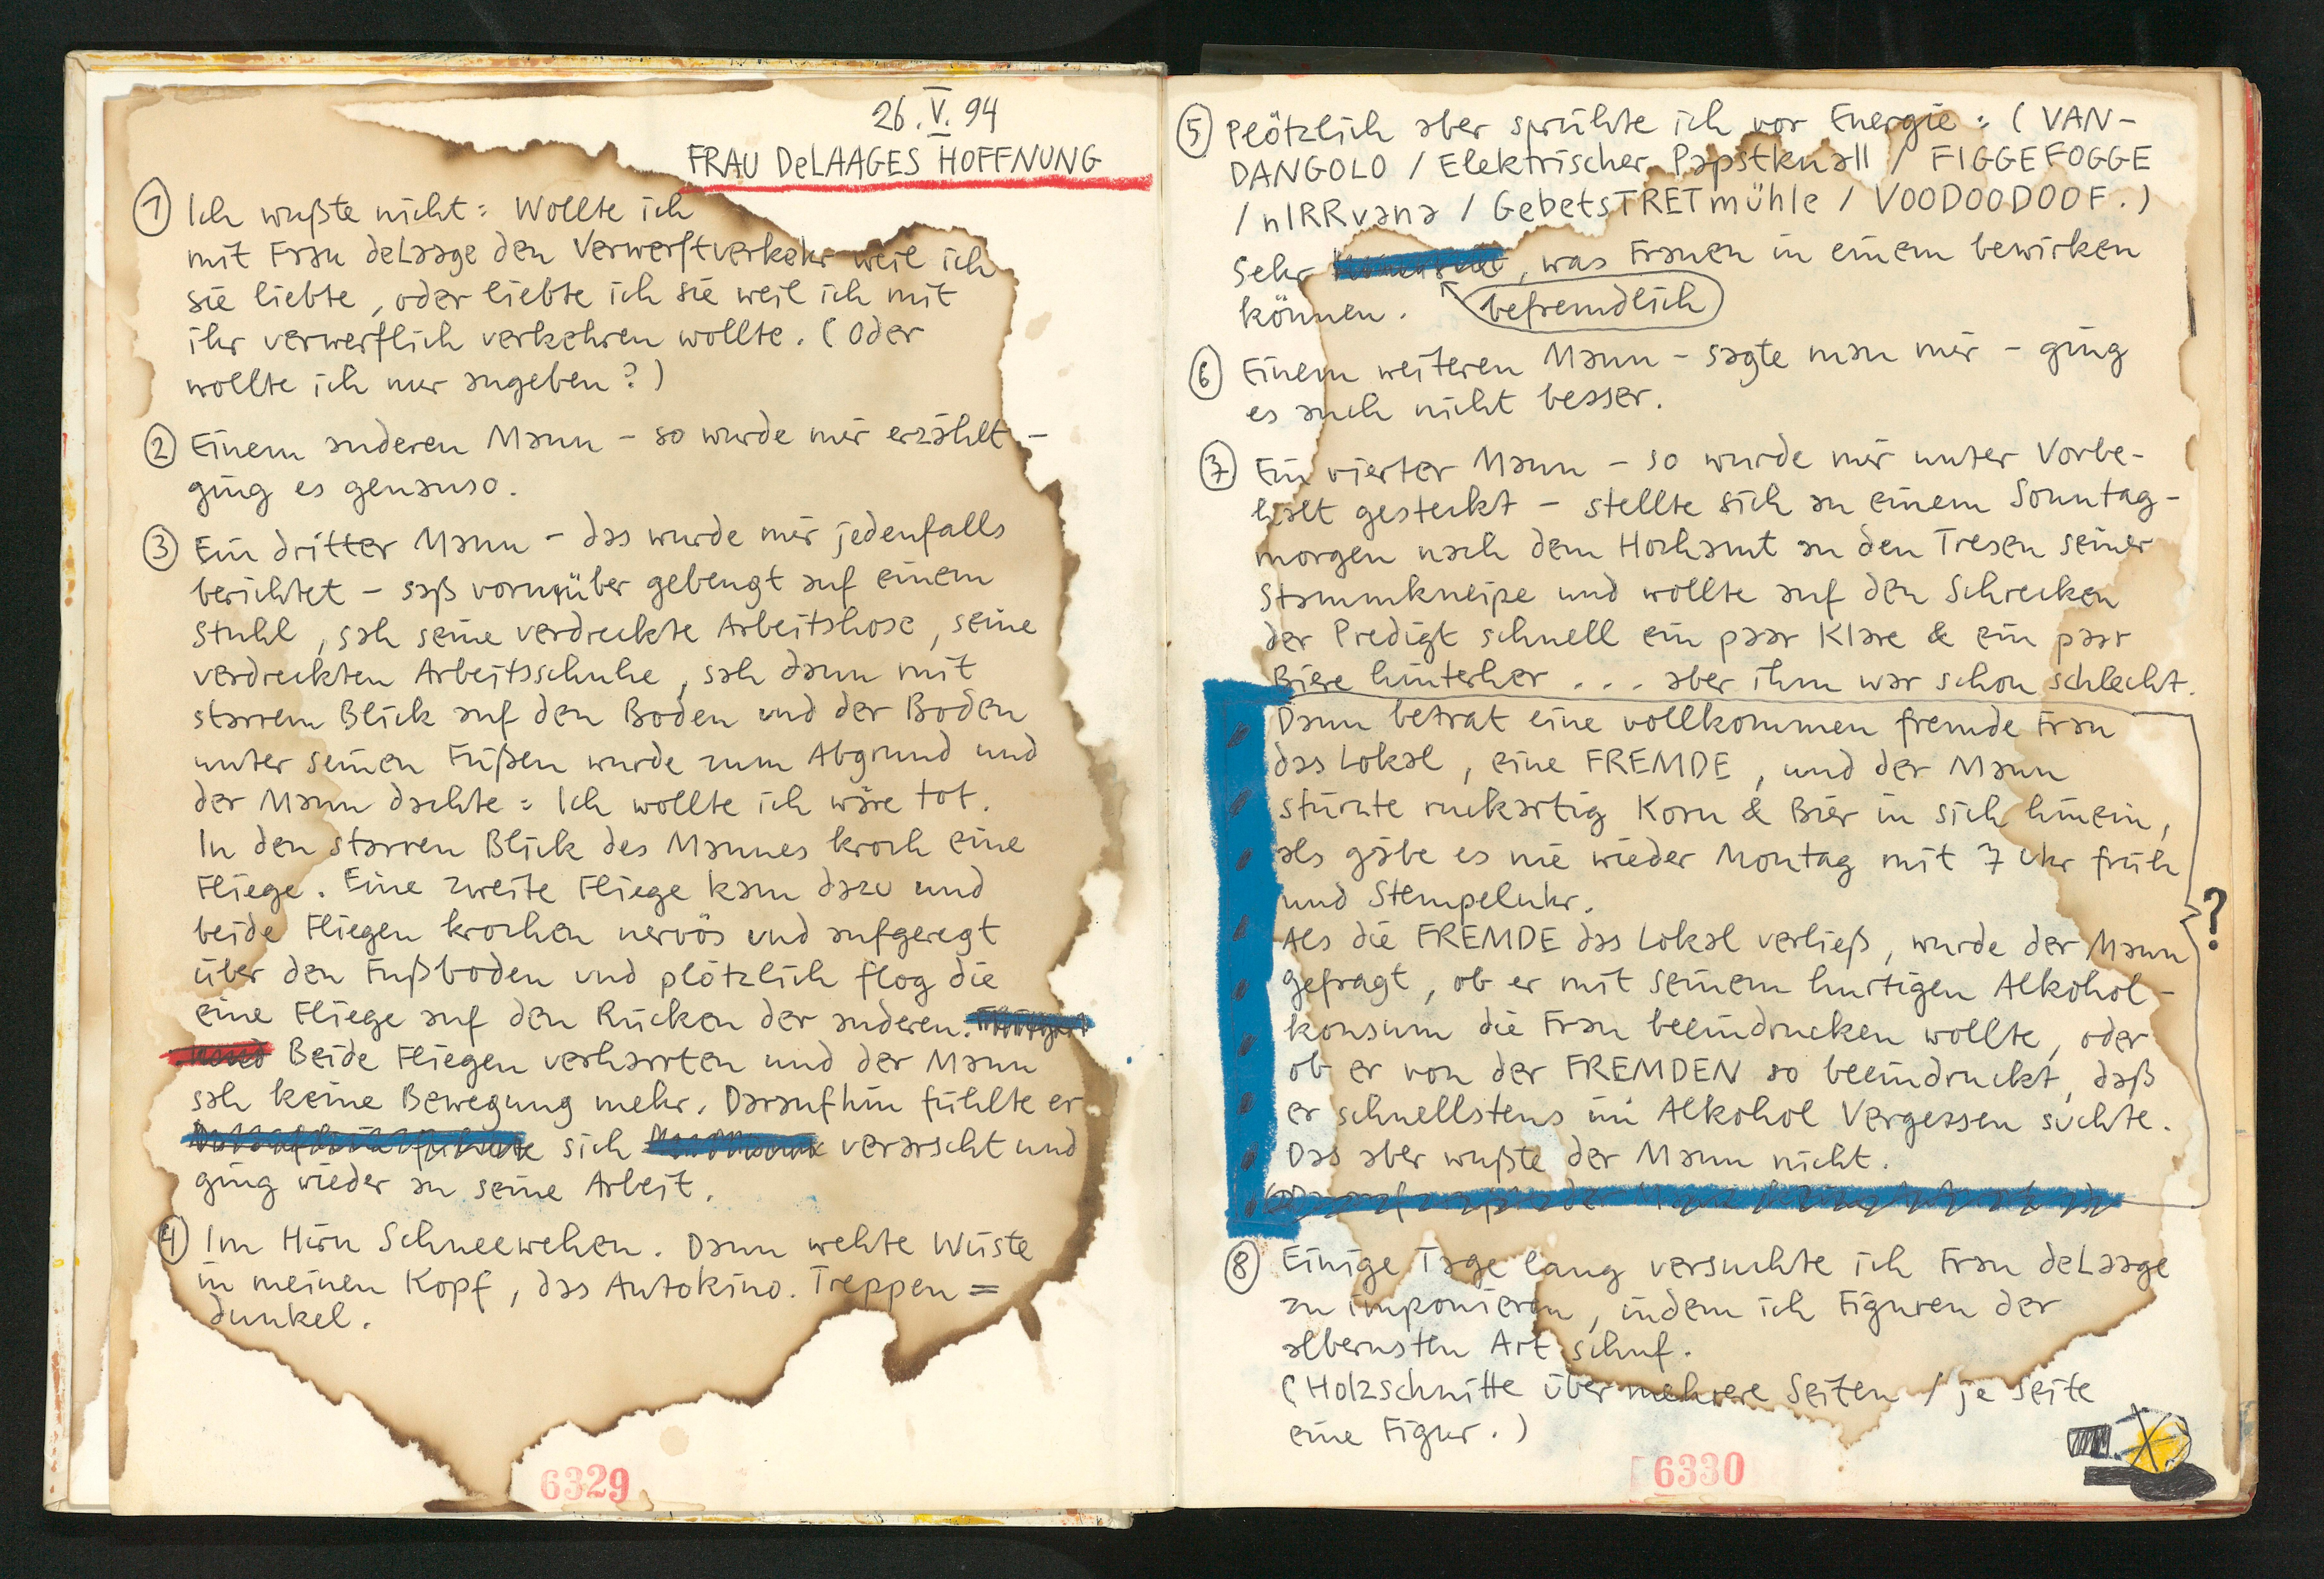 26.V.94
FRAU DeLAAGES HOFFNUNG
① Ich wußte nicht: Wollte ich
mit Frau deLaage den Verwerftverkehr weil ich
sie liebte, oder liebte ich sie weil ich mit
ihr verwerflich verkehren wollte. (Oder
wollte ich nur angeben?)
② Einem anderen Mann – so wurde mir erzählt –
ging es genauso.
③ Ein dritter Mann – das wurde mir jedenfalls
berichtet – saß vornüber gebeugt auf einem
Stuhl, sah seine verdreckte Arbeitshose, seine
verdreckten Arbeitsschuhe, sah dann mit
starrem Blick auf den Boden und der Boden
unter seinen Füßen wurde zum Abgrund und
der Mann dachte: Ich wollte ich wäre tot.
In den starren Blick des Mannes kroch eine
Fliege. Eine zweite Fliege kam dazu und
beide Fliegen krochen nervös und aufgeregt
über den Fußboden und plötzlich flog die
eine Fliege auf den Rücken der anderen.
Beide Fliegen verharrten und der Mann
sah keine Bewegung mehr. Daraufhin fühlte er
sich verarscht und
ging wieder an seine Arbeit.
④ Im Hirn Schneewehen. Dann wehte Wüste
in meinen Kopf, das Autokino. Treppen=
dunkel.
6329
⑤ Plötzlich aber sprühte ich vor Energie: (VAN-
DANGOLO / Elektrischer Papstknall / FIGGEFOGGE
/ nIRRvana / GebetsTRETmühle / VOODOODOOF.)
Sehr , was Frauen in einem bewirken
können. befremdlich
⑥ Einem weiteren Mann – sagte man mir – ging
es auch nicht besser.
⑦ Ein vierter Mann – so wurde mir unter Vorbe-
halt gesteckt – stellte sich an einem Sonntag-
morgen nach dem Hochamt an den Tresen seiner
Stammkneipe und wollte auf den Schrecken
der Predigt schnell ein paar Klare & ein paar
Biere hinterher . . . aber ihm war schon schlecht.
Dann betrat eine vollkommen fremde Frau
das Lokal, eine FREMDE, und der Mann
stürzte ruckartig Korn & Bier in sich hinein,
als gäbe es nie wieder Montag mit 7 Uhr früh
und Stempeluhr.
?
Als die FREMDE das Lokal verließ, wurde der Mann
gefragt, ob er mit seinem hurtigen Alkohol-
konsum die Frau beeindrucken wollte, oder
ob er von der FREMDEN so beeindruckt, daß
er schnellstens im Alkohol Vergessen suchte.
Das aber wußte der Mann nicht.
⑧ Einige Tage lang versuchte ich Frau deLaage
zu imponieren, indem ich Figuren der
albernsten Art schuf.
(Holzschnitte über mehrere Seiten / je Seite
eine Figur.)
6330